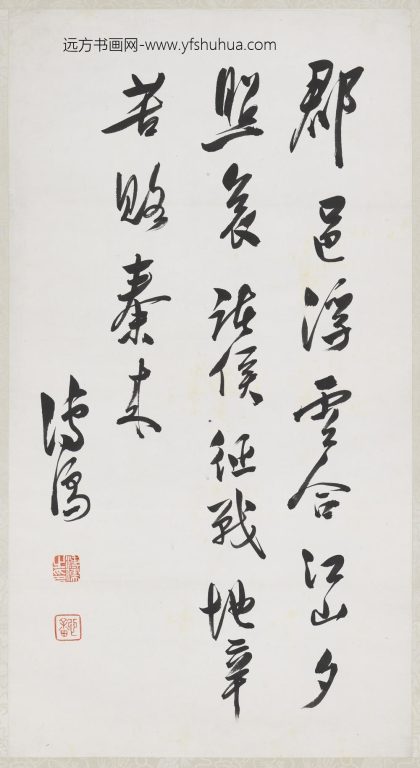 远方书画网-www.yfshuhua.com
郡邑浮雲合江山夕
照哀諸侯征戰地辛
苦賂秦來
溥儒